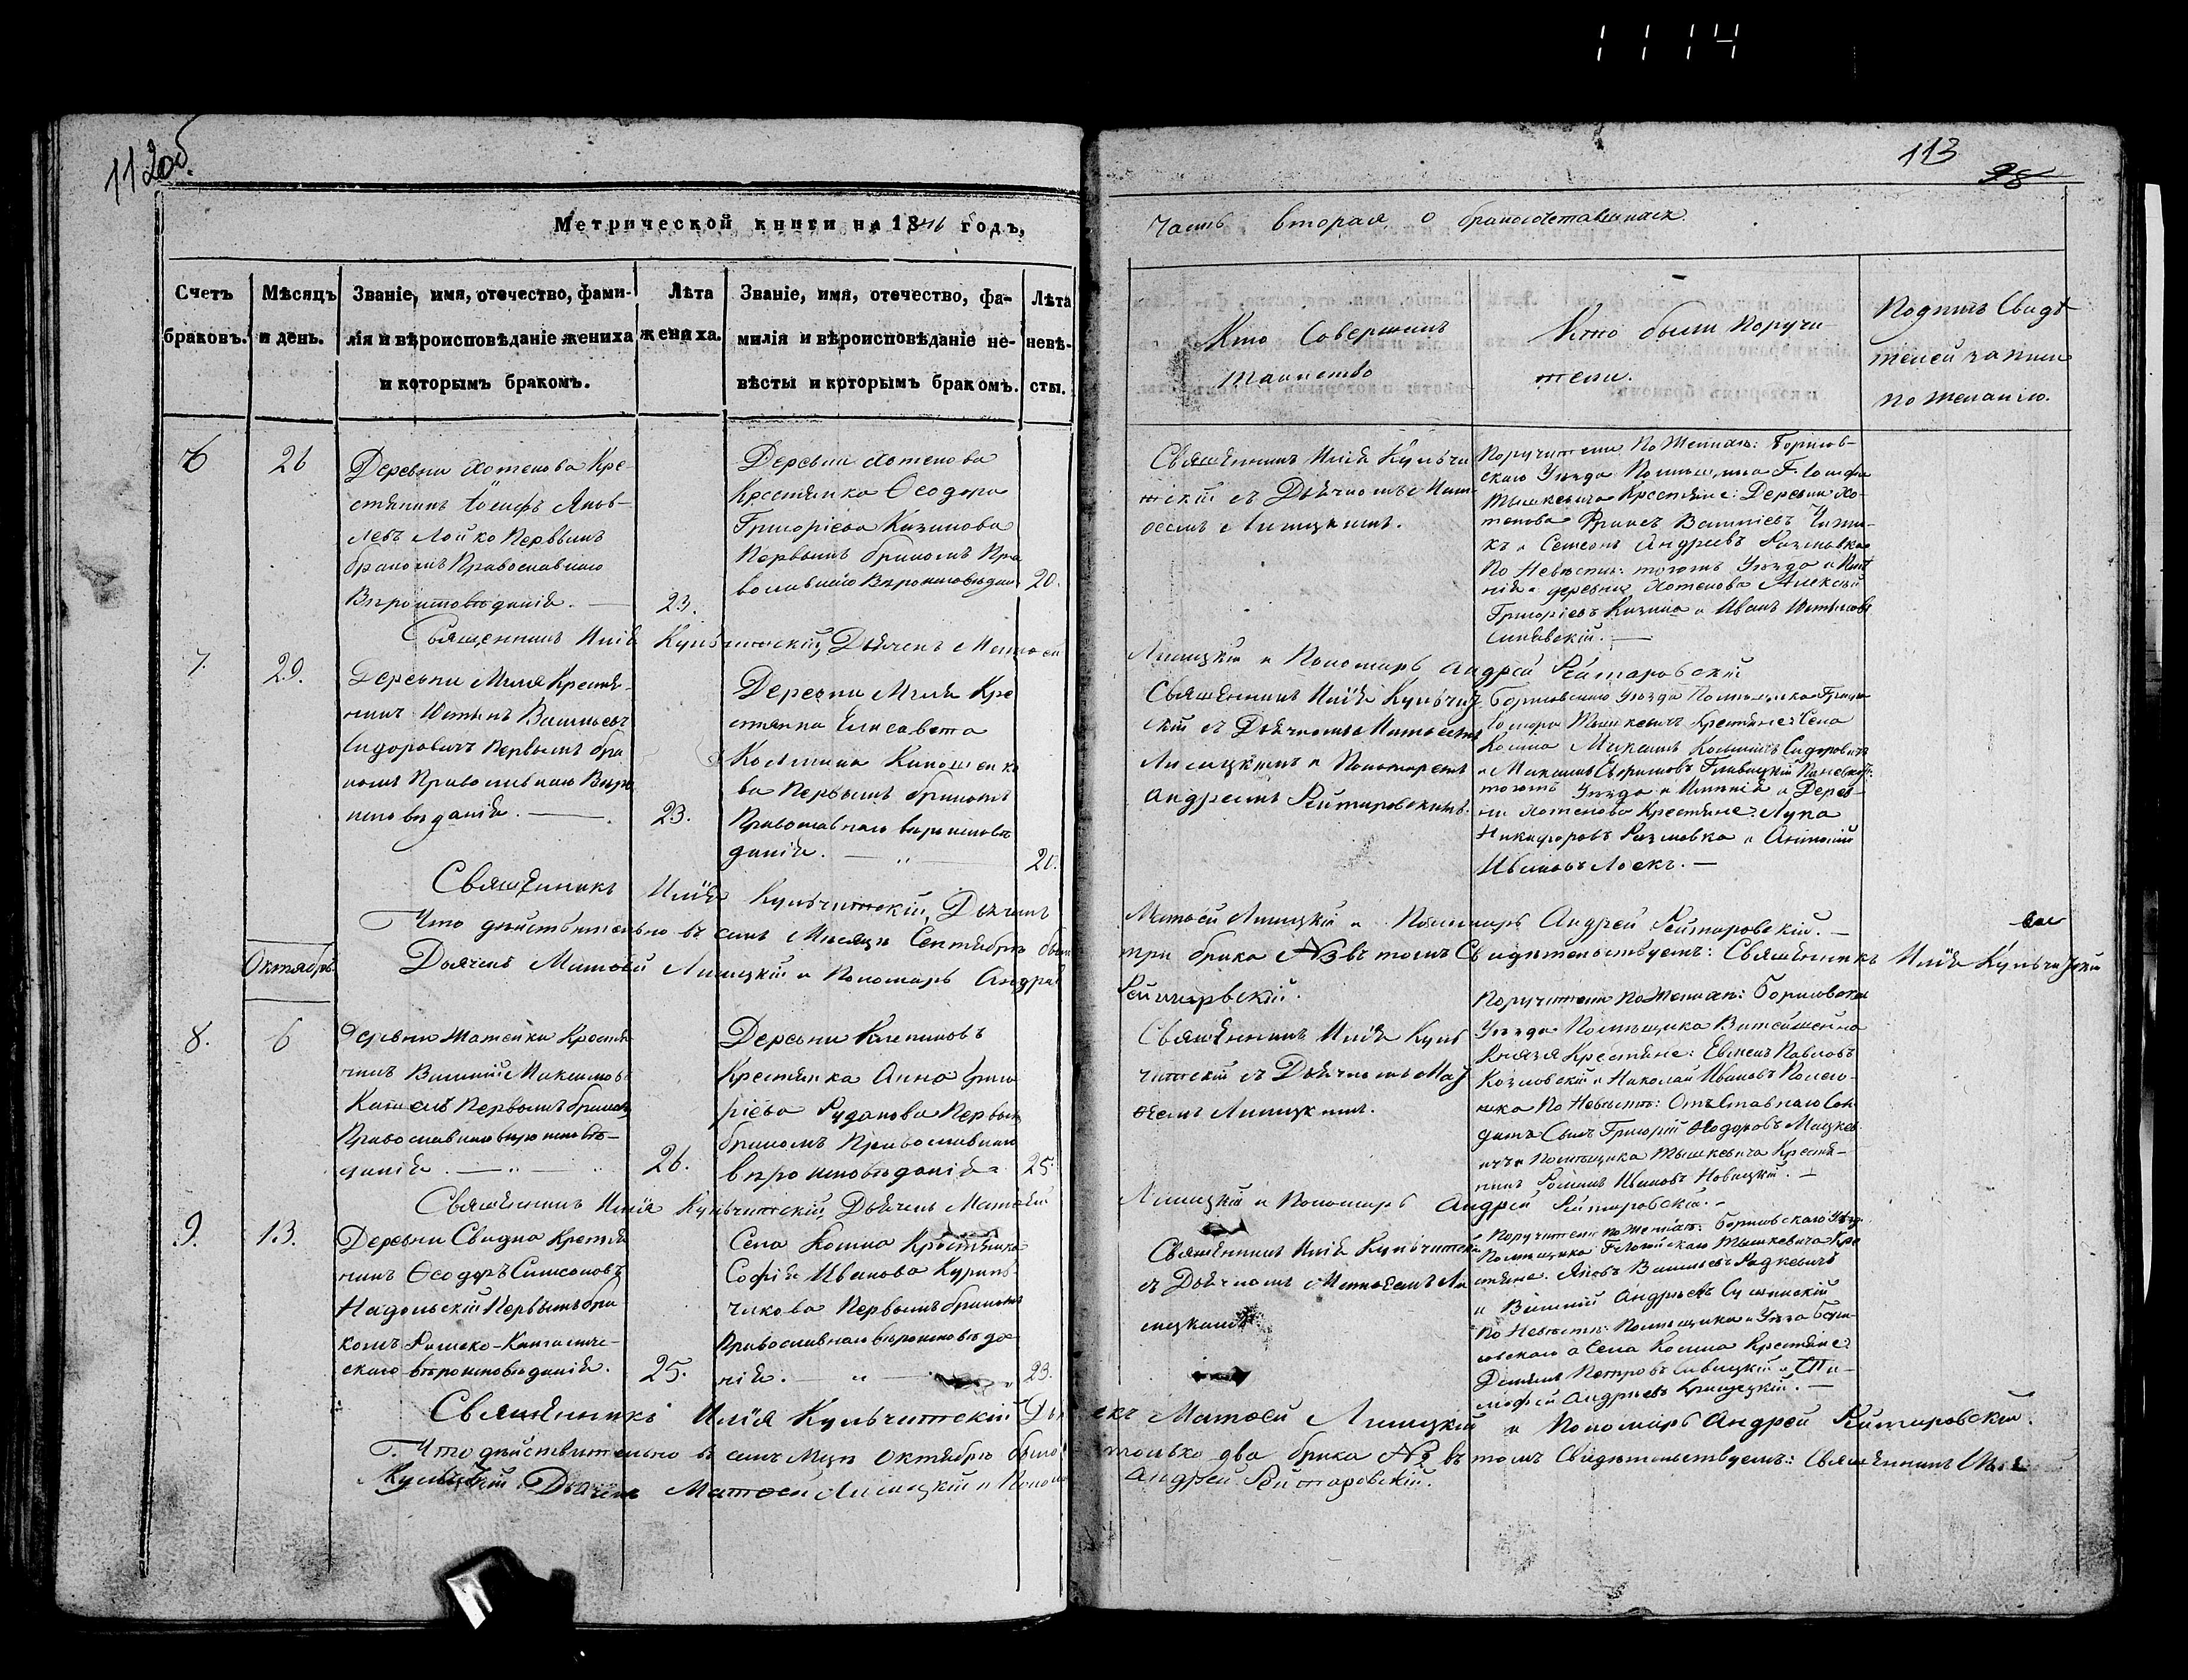 1114
112об.
113
98
Метрической книги на 1846 годъ,
Часть вторая о бракосочетавшихся
Счетъ
браковъ.
Мѣсяцъ
и день.
Званіе, имя, отечество, фами-
лія и вѣроисповѣданіе жениха
и которымъ бракомъ.
Лѣта
жениха.
Званіе, имя, отечество, фа-
милія и вѣроисповѣданіе не-
вѣсты и которымъ бракомъ.
Лѣта
невѣ-
сты.
Кто Совершилъ
таинство
Кто были Поручи
тели.
Подпись Свидѣ
телей записи
по желанію.
6
26
Деревни Хотенова Кре-
стянинъ Іосифъ Яков-
левъ Лойко Первымъ
бракомъ Православнаго
Вѣроисповѣданія.
23.
Деревни Хотенова
Крестянка Ѳеодора
Григоріева Казакова
Первымъ бракомъ Пра
вославнаго Вѣроисповѣдан
20.
Священникъ Илія Кульчи
тскій съ Дьячкомъ Мат
ѳеемъ Лисицкимъ.
Поручители По Женихѣ: Борисов-
скаго Уѣзда Помѣщика Г. Іосифа
Тышкевича Крестяне: Деревни Хо-
тенова
къ и Семеонъ Андреевъ Размовка
По Невѣстѣ: тогожъ Уѣзда и Имѣ
нія деревни Хотенова Алексѣй
Григоріевъ Казака и Иванъ
Синявскій.
Священникъ Илія Кульчитскій, Дьячекъ Матѳей
Лисицкій и Пономарь Андрей Рейтаровскій
7.
29.
Деревни Мхи Крестя-
нинъ Васильевъ
Сидоровичъ Первымъ бра
комъ Православнаго Вѣро
исповѣданія.
23.
Деревни Мхи Кре
стянка Елисавета
Космина
ва Первымъ бракомъ
Православнаго вѣроисповѣ
данія.
21.
Священникъ Илія Кульчит
скій съ Дьячкомъ Матѳеемъ
Лисицкимъ и Пономаремъ
Андреемъ Рейтаровскимъ.
Борисовскаго Уѣзда Помѣщика
Тышкевича Крестяне: Села
Косина Сидоровичъ
и Максимъ Ефимовъ По невѣстѣ:
тогожъ Уѣзда и Имѣнія и Дерев-
ни Хотенова Крестяне: Лука
Никифоровъ Размовка и Антоній
Ивановъ Лоекъ.
Священникъ Илія Кульчитскій, Дьячекъ
Матѳей Лисицкій и Пономарь Андрей Рейтаровскій.
Что дѣйствительно въ семъ Мѣсяцѣ Сентябрѣ было
три брака №3 въ томъ Свидѣтельствуемъ: Священникъ Илія Кульчитскій
Дьячекъ Матѳей Лисицкій и Пономарь Андрей
Рейтаровскій.
Октябрь
8.
6
Деревни Матейки Крестя
нинъ Василій Максимовъ
Первымъ бракомъ
Православнаго вѣроисповѣ-
данія.
26.
Деревни
Крестянка Анна Григо
ріева Рудакова Первымъ
бракомъ Православнаго
вѣроисповѣданія
25.
Священникъ Илія Куль
читскій съ Дьячкомъ Мат
ѳеемъ Лисицкимъ.
Поручители по Женихѣ: Борисовскаго
Уѣзда Помѣщика Витгенштейна
Князя Крестяне: Евменъ Павловъ
Козловскій и Николай Ивановъ
По Невѣстѣ: Отъставнаго Сол
датъ Сынъ Григорій Ѳеодоровъ Мацкев
ичъ и Помѣщика Тышкевича Крестя-
нинъ Романъ Ивановъ Новицкій.
Священникъ Илія Кульчитскій, Дьячекъ Матѳей
Лисицкій и Пономарь Андрей Рейтаровскій.
9.
13.
Деревни Свидна Крестя
нинъ Ѳеодоръ Симеоновъ
Надольскій Первымъ бра
комъ Римско-Католиче-
скаго вѣроисповѣданія.
25.
Села Косина Крестянка
Софія Иванова Куриль-
чикова Первымъ бракомъ
Православнаго вѣроисповѣда
нія.
23.
Священникъ Илія Кульчитскій
съ Дьячкомъ Матѳеемъ Ли
сицкимъ
Поручители по Женихѣ: Борисовскаго Уѣзда
Помѣщика Тышкевича Кре
стяне: Яковъ Васильевъ Радкевичъ
и Василій Андреевъ
По Невѣстѣ: Помѣщика и Уѣзда Бори-
совскаго а Села Косина Крестяне:
Демьянъ Петровъ Сивицкій и Ти-
моѳей Андреевъ
Священникъ Илія Кульчитскій Дья
чекъ Матѳей Лисицкій и Пономарь Андрей Рейтаровскій.
Что дѣйствительно въ семъ Мцѣ Октябрѣ было
только два брака №2 въ томъ Свидѣтельствуемъ: Священникъ Илія
Кульчитскій Дьячекъ Матѳей Лисицкій и Пономарь
Андрей Рейтаровскій.